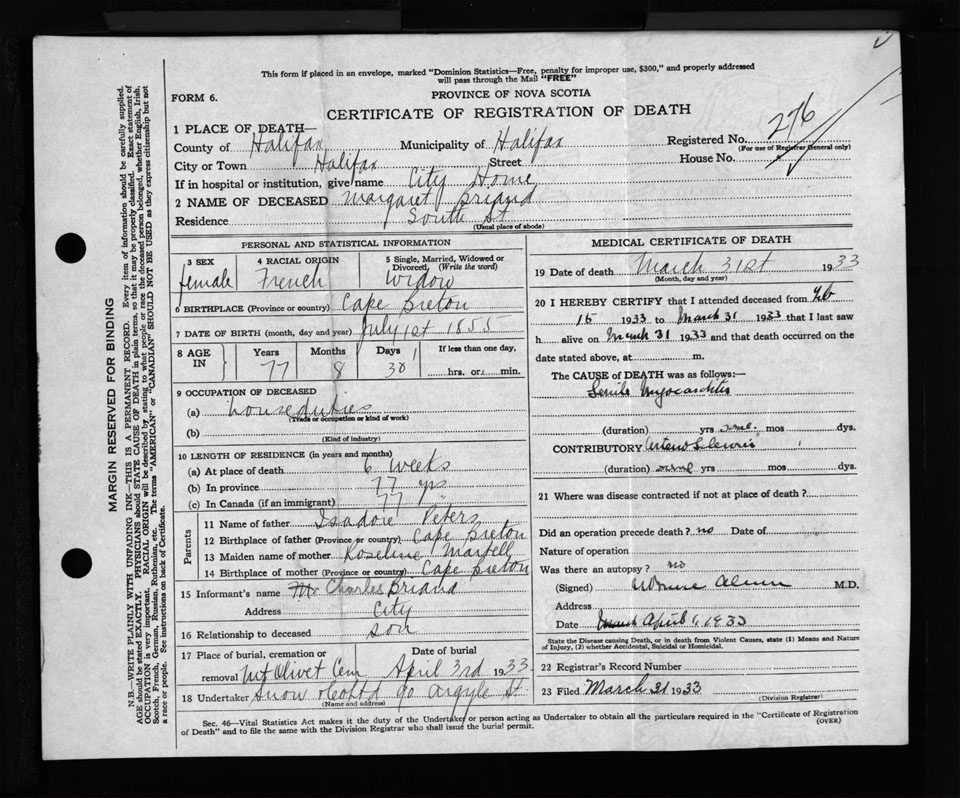 This form if placed in an envelope, marked "Dominion Statistics—Free, penalty for improper use, $300," and properly addressed
will pass through the Mail "FREE"
FORM 6.
PROVINCE OF NOVA SCOTIA
CERTIFICATE OF REGISTRATION OF DEATH
1 PLACE OF DEATH—
County of Halifax Municipality of Halifax Registered No. 276
(For use of Registrar General only)
City or Town Halifax Street House No.
If in hospital or institution, give name City Home
2 NAME OF DECEASED Margaret Briand
Residence South St
(Usual place of abode)
PERSONAL AND STATISTICAL INFORMATION
3 SEX 4 RACIAL ORIGIN 5 Single, Married, Widowed or Divorced (Write the word)
female French Widow
6 BIRTHPLACE (Province or country) Cape Breton
7 DATE OF BIRTH (month, day and year) July 1st 1855
8 AGE IN Years Months Days If less than one day,
77 8 30 hrs. or min.
9 OCCUPATION OF DECEASED
(a) house duties
(Trade or occupation or kind of work)
(b)
(Kind of industry)
10 LENGTH OF RESIDENCE (in years and months)
(a) At place of death 6 weeks
(b) In province 77 yrs
(c) In Canada (if an immigrant) 77 "
Parents
11 Name of father Isadore Peters
12 Birthplace of father (Province or country) Cape Breton
13 Maiden name of mother Roseline Martell
14 Birthplace of mother (Province or country) Cape Breton
15 Informant's name Mr Charles Briand
Address City
16 Relationship to deceased son
17 Place of burial, cremation or removal Mt Olivet Cem Date of burial April 3rd 1933
18 Undertaker Snow & Co Ltd 90 Argyle St
(Name and address)
MEDICAL CERTIFICATE OF DEATH
19 Date of death March 31st 1933
(Month, day and year)
20 I HEREBY CERTIFY that I attended deceased from Feb
15 1933 to March 31 1933 that I last saw
h alive on March 31 1933 and that death occurred on the
date stated above, at m.
The CAUSE of DEATH was as follows:—
Senile Myocarditis
(duration) yrs mos dys.
CONTRIBUTORY
(duration) yrs mos dys.
21 Where was disease contracted if not at place of death?
Did an operation precede death? no Date of
Nature of operation
Was there an autopsy? no
(Signed) M.D.
Address
Date April 1 1933
State the Disease causing Death, or in death from Violent Causes, state (1) Means and Nature
of Injury, (2) whether Accidental, Suicidal or Homicidal.
22 Registrar's Record Number
23 Filed March 31 1933
(Division Registrar)
Sec. 46—Vital Statistics Act makes it the duty of the Undertaker or person acting as Undertaker to obtain all the particulars required in the "Certificate of Registration
of Death" and to file the same with the Division Registrar who shall issue the burial permit.
(OVER)
MARGIN RESERVED FOR BINDING
N.B.—WRITE PLAINLY WITH UNFADING INK—THIS IS A PERMANENT RECORD. Every item of information should be carefully supplied.
AGE should be stated EXACTLY. PHYSICIANS should STATE CAUSE OF DEATH in plain terms, so that it may be properly classified. Exact statement of
OCCUPATION is very important. RACIAL ORIGIN will be described by stating to what people or race the deceased person belonged, whether English, Irish,
Scotch, French, German, Russian, Ruthenian, etc. The terms "AMERICAN" or "CANADIAN" SHOULD NOT BE USED as they express citizenship but not
a race or people. See instructions on back of Certificate.